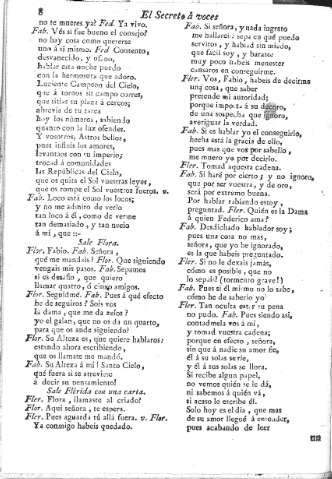 8
El Secreto á voces
no te mueres ya? Fed. Ya vivo.
Fab. Ves si fue bueno el consejo?
no hay cosa como quererse
uno á si mismo. Fed. Contento,
desvanecido, y ufano,
hablar esta noche puedo
con la hermosura que adoro.
Luciente Campeon del Cielo,
que á tornos sit campo corres,
que sitias su plaza á cercos;
abrevia de tu tarea
hoy los números, sabiendo
quanto con la luz ofendes.
Y vosotros, Astros bellos,
pues influís los amores,
levantaos con tu imperio;
trocad á comunidades
las Repúblicas del Cielo,
que os quita el Sol vuestras leyes,
que os rompe el Sol vuestros fueros. v.
Fab. Loco está como los locos;
y no me admiro de verlo
tan loco á él, como de verme
tan demasiado, y tan necio
á mi, que
Sale Flora.
Flor. Fabio. Fab. Señora,
qué me mandais? Flor. Que siguiendo
vengais mis pasos. Fab. Sepamos
si es desafio, que quiero
llamar quatro, ó cinco amigos.
Flor. Seguidme. Fab. Pues á qué efecto
he de seguiros? Sois vos
la dama, que me da zelos?
yo el galan, que no os da un quarto,
para que os ande siguiendo?
Flor. Su Alteza es, que quiere hablaros:
estando ahora escribiendo,
que os llamate me mandó.
Fab. Su Alteza á mí! Santo Cielo,
qué fuera si se atreviese
á decir su pensamiento!
Sale Flérida con una carta.
Fler. Flora, llamaste al criado?
Flor. Aquí señora, te espera.
Fler. Pues aguarda tú allá fuera. v. Flor.
Ya conmigo habeis quedado.
Fab. Si señora, y nada ingrato
me hallareis: sepa en qué puedo
serviros, y hablad sin miedo,
que facil soy, y barato:
muy poco habeis menester
cansaros en conseguirme.
Fler. Vos, Fabio, habeis de decirme
una cosa, que saber
pretende mi autoridad;
porque importa á su decoro,
de una sospecha que ignora,
averiguar la verdad.
Fab. Si es hablar yo el conseguirlo,
hecha está la gracia de ello,
pues mas que vos por sabello,
me muero yo por decirlo.
Fler. Tomad aquesta cadena.
Fab. Sí haré por cierto; y no ignoro,
que por ser vuestra, y de oro,
será por extremo buena.
Por hablar rabiando estoy,
preguntad. Fler. Quién es la Dama
á quien Federico ama?
Fab. Desdichado hablador soy;
pues una cosa no mas,
señora, que yo he ignorado,
es la que habeis preguntado.
Fler. Si no le dexais jamás,
cómo es posible, que no
lo sepais? (tormento grave!)
Fab. Pues si él mismo no lo sabe,
cómo he de saberlo yo?
Fler. Tan oculta estar su pena
no pudo. Fab. Pues siendo así,
contadmela vos á mí,
y tomad vuestra cadena;
porque en efecto, señora,
sin que á nadie su amor fie,
él á su solas se rie,
y él á sus solas se llora.
Si recibe algun papel,
no vemos quién se le dá,
ni sabemos á quién vá,
si acaso le escribe él.
Solo hoy es el dia, que mas
de su amor llegué á entender,
pues acabando de leer